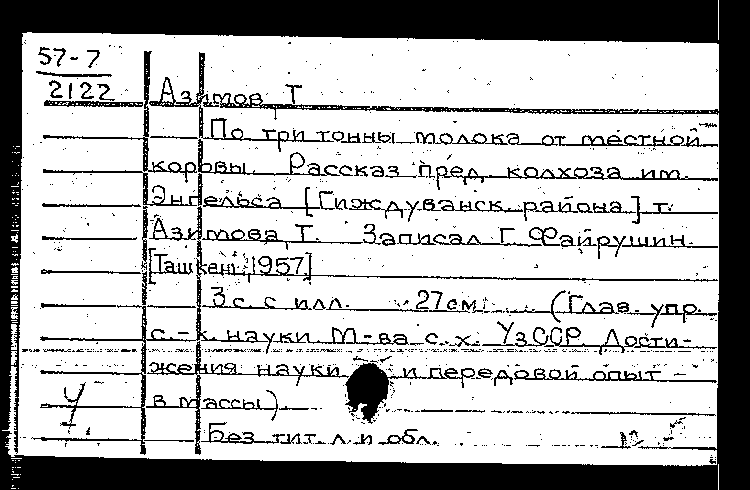 57-7
2122
Азимов Т
По три тонны молока от местной
коровы. Рассказ пред. колхоза им.
Энгельса [Гиждуванск. района] т.
Азимова, Т. Записал Г. Файрушин.
[Ташкент, 1957]
3 с. с илл. 27 см. (Глав. упр.
с.-х. науки М-ва с. х. УзССР. Дости-
жения науки и передовой опыт -
в массы).
Без тит. л. и обл.